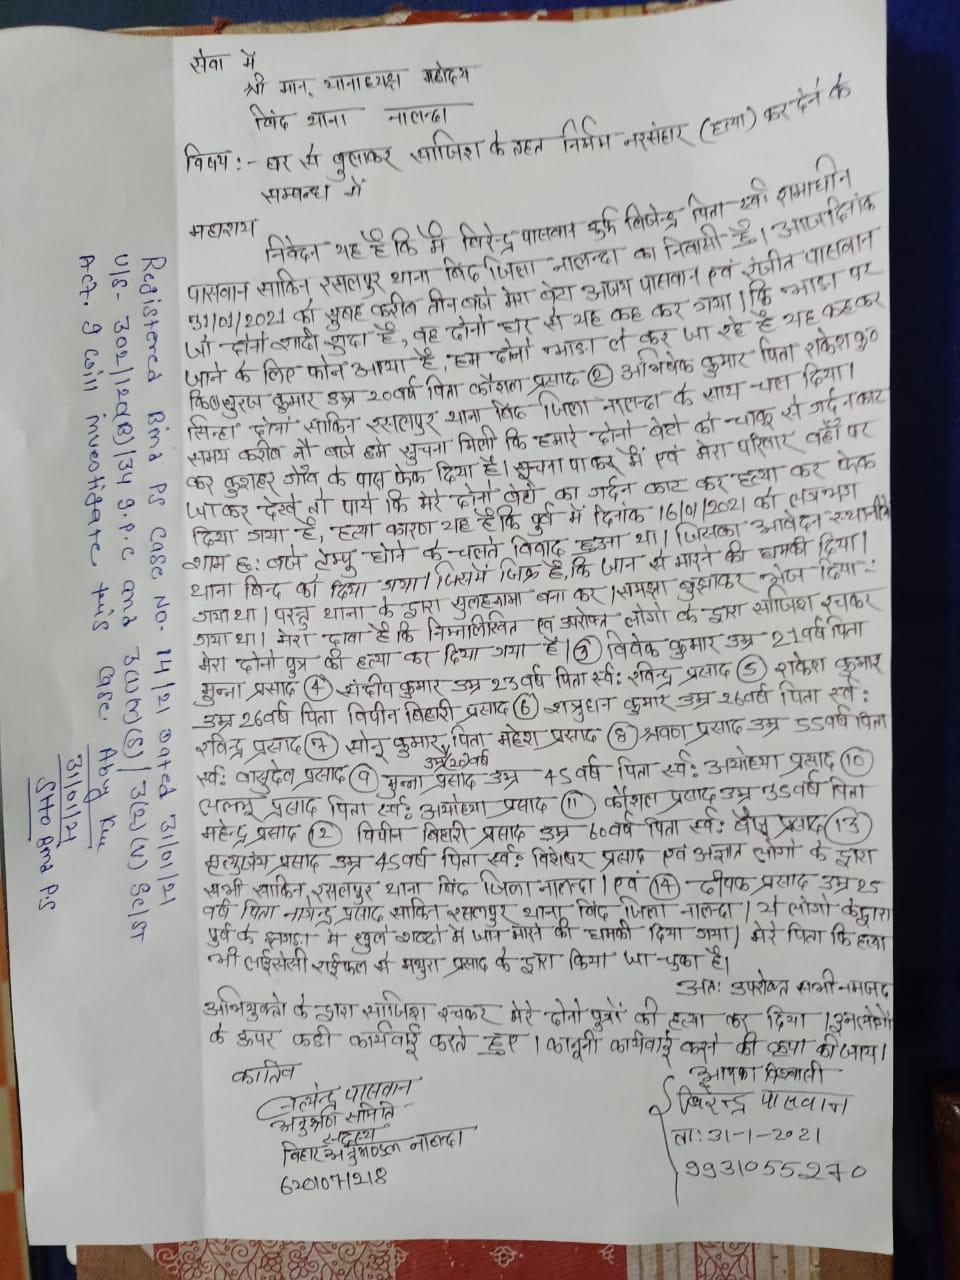 सेवा में
श्री मान् थानाध्यक्ष महोदय
बिंद थाना नालन्दा
विषय :- घर से बुलाकर साजिश के तहत निर्मम नरसंहार (हत्या) कर देने के
सम्बन्ध में
महाशय
निवेदन यह है कि मैं बिरेन्द्र पासवान उर्फ बिजेन्द्र पिता स्व॰ रामाधीन
पासवान साकिन रसलपुर थाना बिंद जिला नालन्दा का निवासी है। आज दिनांक
31/01/2021 को सुबह करीब तीन बजे मेरा बेटा अजय पासवान एवं रंजीत पासवान
जो दोनो शादी शुदा है, वह दोनो घर से यह कह कर गया। कि भाड़ा पर
जाने के लिए फोन आया है, हम दोनो भाड़ा ले कर जा रहे है यह कह कर
सुरज कुमार उम्र 20 वर्ष पिता कौशल प्रसाद (2) अभिषेक कुमार पिता राकेश कु॰
सिन्हा दोनो साकिन रसलपुर थाना बिंद जिला नालन्दा के साथ चल दिया।
समय करीब नौ बजे हमे सुचना मिली कि हमारे दोनो बेटो को चाकू से गर्दन काट
कर कुशहर गाँव के पास फेक दिया है। सूचना पाकर मैं एवं मेरा परिवार वहाँ पर
जाकर देखे तो पाये कि मेरे दोनो बेटो का गर्दन काट कर हत्या कर फेक
दिया गया है, हत्या कारण यह है कि पुर्व में दिनांक 16/01/2021 को लगभग
शाम छः बजे टेम्पु होने के चलते विवाद हुआ था। जिसका आवेदन स्थानीय
थाना बिन्द को दिया गया। जिसमें जिक्र है, कि जान से मारने की धमकी दिया।
गया था। परन्तु थाना के द्वारा सुलहनामा बना कर। समझा बुझाकर भेज दिया
गया था। मेरा दावा है कि निम्नलिखित एवं उपरोक्त लोगो के द्वारा साजिश रचकर
मेरा दोनो पुत्र की हत्या कर दिया गया है। (3) विवेक कुमार उम्र 21 वर्ष पिता
मुन्ना प्रसाद (4) संदीप कुमार उम्र 23 वर्ष पिता स्वः रविन्द्र प्रसाद (5) राकेश कुमार
उम्र 26 वर्ष पिता विपीन बिहारी प्रसाद (6) शत्रुधन कुमार उम्र 26 वर्ष पिता स्वः
रविन्द्र प्रसाद (7) सोनू कुमार उम्र 22 वर्ष पिता महेश प्रसाद (8) श्रवण प्रसाद उम्र 55 वर्ष पिता
स्वः वासुदेव प्रसाद (9) मुन्ना प्रसाद उम्र 45 वर्ष पिता स्वः अयोध्या प्रसाद (10)
प्रसाद पिता स्वः अयोध्या प्रसाद (11) कौशल प्रसाद उम्र 35 वर्ष पिता
महेन्द्र प्रसाद (12) विपीन बिहारी प्रसाद उम्र 60 वर्ष पिता स्वः प्रसाद (13)
मृत्युजंय प्रसाद उम्र 45 वर्ष पिता स्वः विशेषर प्रसाद एवं अज्ञात लोगो के द्वारा
सभी साकिन रसलपुर थाना बिंद जिला नालन्दा। एवं (14) दीपक प्रसाद उम्र 25
वर्ष पिता नागेन्द्र प्रसाद साकिन रसलपुर थाना बिंद जिला नालन्दा। ये लोगो के द्वारा
पुर्व के झगड़ा में खुले शब्दो में जान मारने की धमकी दिया गया। मेरे पिता कि हत्या
भी लाईसेंसी राईफल से मथुरा प्रसाद के द्वारा किया जा चुका है।
अतः उपरोक्त सभी नामजद
अभियुक्तो के द्वारा साजिश रचकर मेरे दोनो पुत्रों की हत्या कर दिया। इनलोगो
के ऊपर कड़ी कार्यवाई करते हुए। कानूनी कार्यवाई करने की कृपा की जाय।
कातिब
पासवान
अनुश्रवण समिति
सदस्य
बिहार नालन्दा
6201071218
आपका विश्वासी
बिरेन्द्र पासवान
ताः 31-1-2021
9931055270
Registered Bind PS Case No. 14/21 Dated 31/01/21
U/s- 302/120(B)/34 I.P.C and 3(1)(r)(s)/3(2)(v) SC/ST
Act. I will investigate this case.
31/01/21
SHO Bind P.S